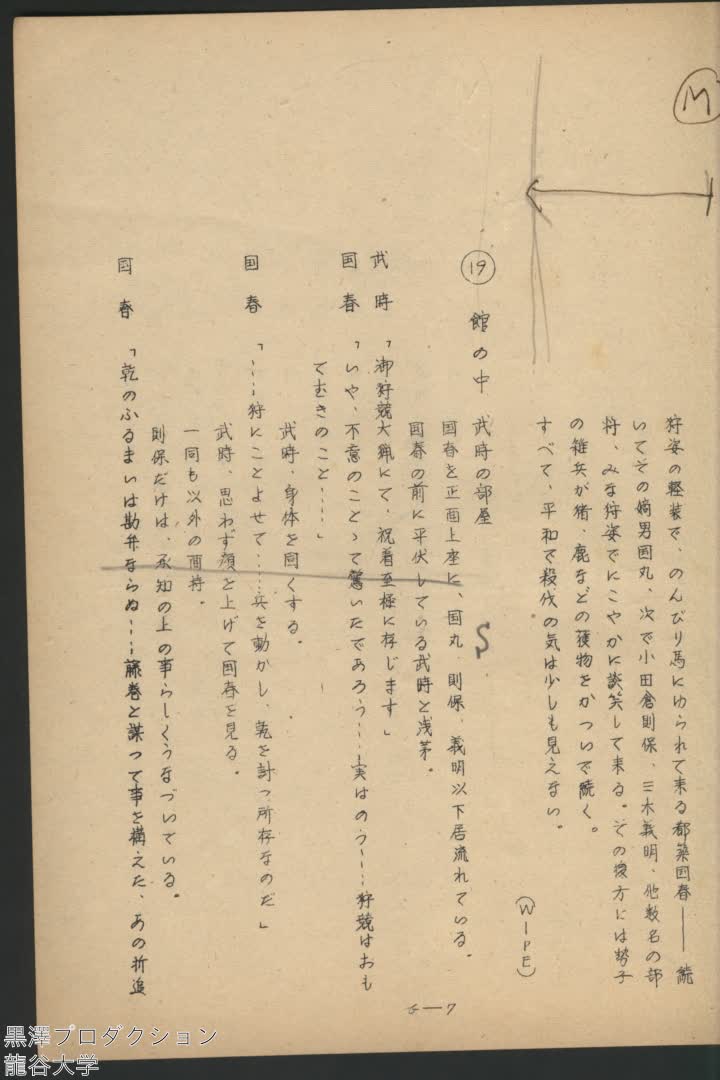 M
狩姿の軽装で、のんびり馬にゆられて来る都築国春——続
いてその嫡男国丸、次で小田倉則保、三木義明、他数名の部
将、みな狩姿でにこやかに談笑して来る。その後方には勢子
の雑兵が猪、鹿などの獲物をかついで続く。
すべて、平和で殺伐の気は少しも見えない。
(WIPE)
19 館の中 武時の部屋
国春を正面上座に、国丸、則保、義明以下居流れている。
国春の前に平伏している武時と浅茅。
武時「御狩競大猟にて、祝着至極に存じます」
国春「いや、不意のことゝて驚いたであろう……実はのう……狩競はおも
てむきのこと……」
武時、身体を固くする。
国春「……狩にことよせて……兵を動かし、乾を討つ所存なのだ」
武時、思わず顔を上げて国春を見る。
一同も以外の面持。
則保だけは、承知の上の事らしくうなづいている。
国春「乾のふるまいは勘弁ならぬ……藤巻と謀って事を構えた、あの折追
S
G—7
黒澤プロダクション
龍谷大学